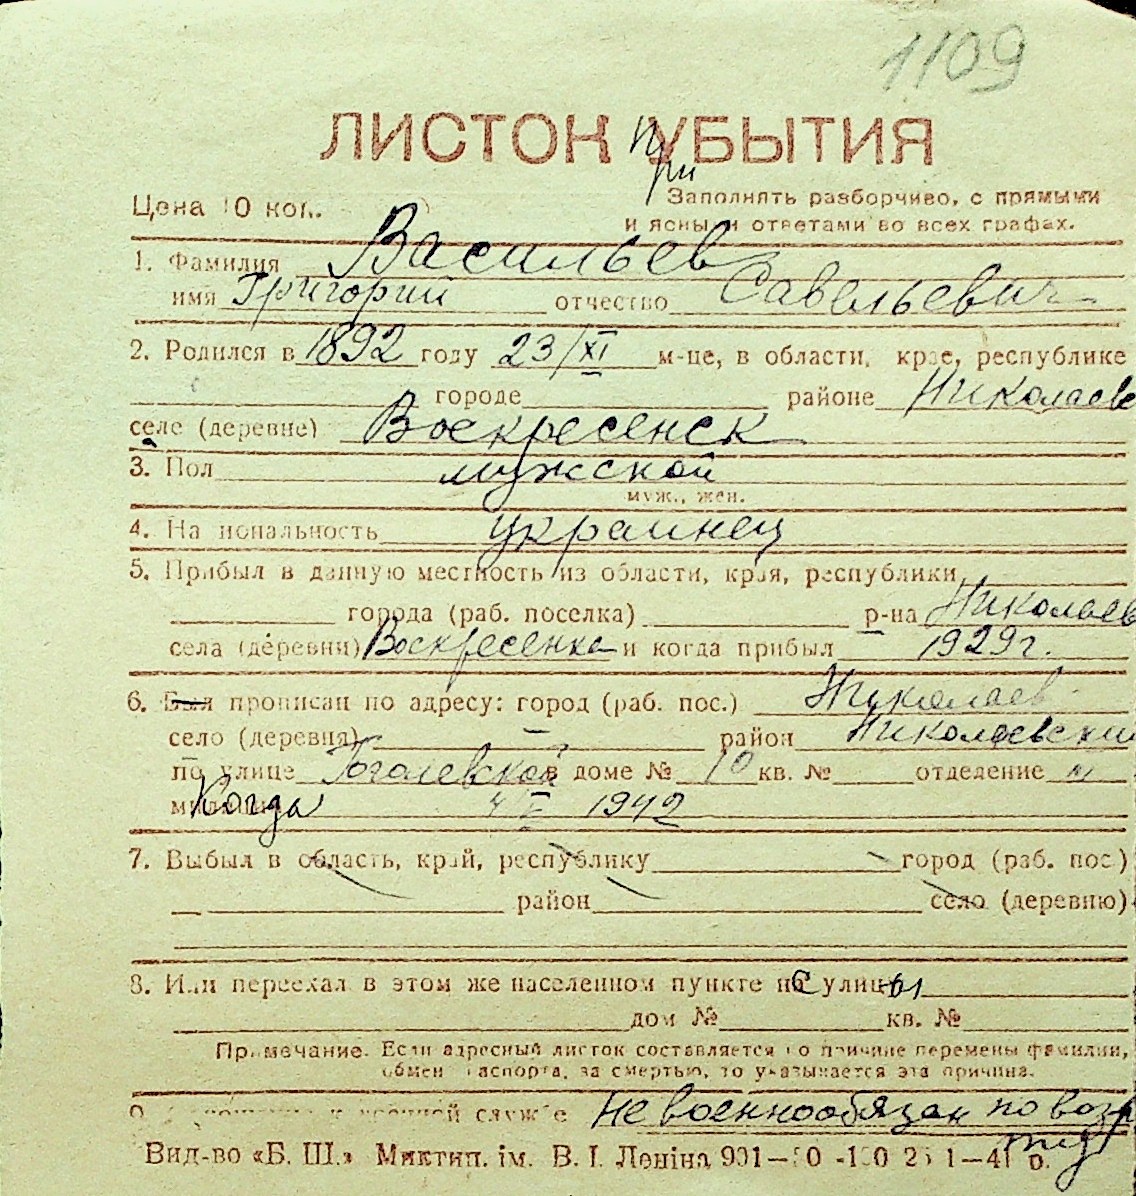 1109
ЛИСТОК УБЫТИЯ
при
Цена 10 коп. Заполнять разборчиво, с прямыми
и ясными ответами во всех графах.
1. Фамилия Васильев
имя Григорий отчество Савельевич
2. Родился в 1892 году 23/XI м-це, в области, крае, республике
городе районе Николаевс
селе (деревне) Воскресенск
3. Пол мужской
муж., жен.
4. Национальность украинец
5. Прибыл в данную местность из области, края, республики
города (раб. поселка) р-на Николаев
села (деревни) Воскресенка и когда прибыл 1929 г.
6. Был прописан по адресу: город (раб. пос.) Николаев
село (деревня) район Николаевский
по улице Гоголевской в доме № 10 кв. № отделение
милиции Когда 1942
7. Выбыл в область, край, республику город (раб. пос.)
район село (деревню)
8. Или переехал в этом же населенном пункте на с улицы
дом № кв. №
Примечание. Если адресный листок составляется по причине перемены фамилии,
обмен паспорта, за смертью, то указывается эта причина.
9. Отношение к военной службе Не военнообязан по возр
Вид-во «Б. Ш.» Миктип. ім. В. І. Леніна 901